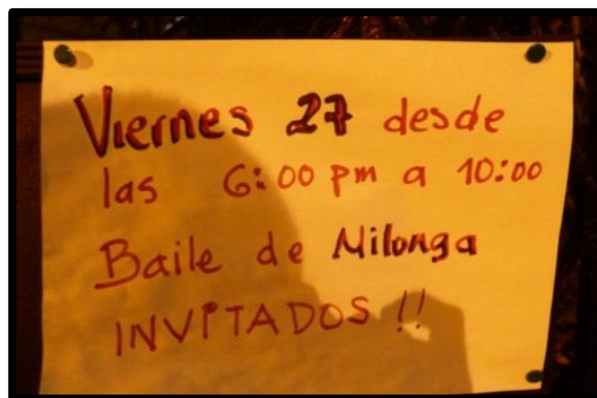 Viernes 27 desde
las 6:00 pm a 10:00
Baile de Milonga
INVITADOS !!